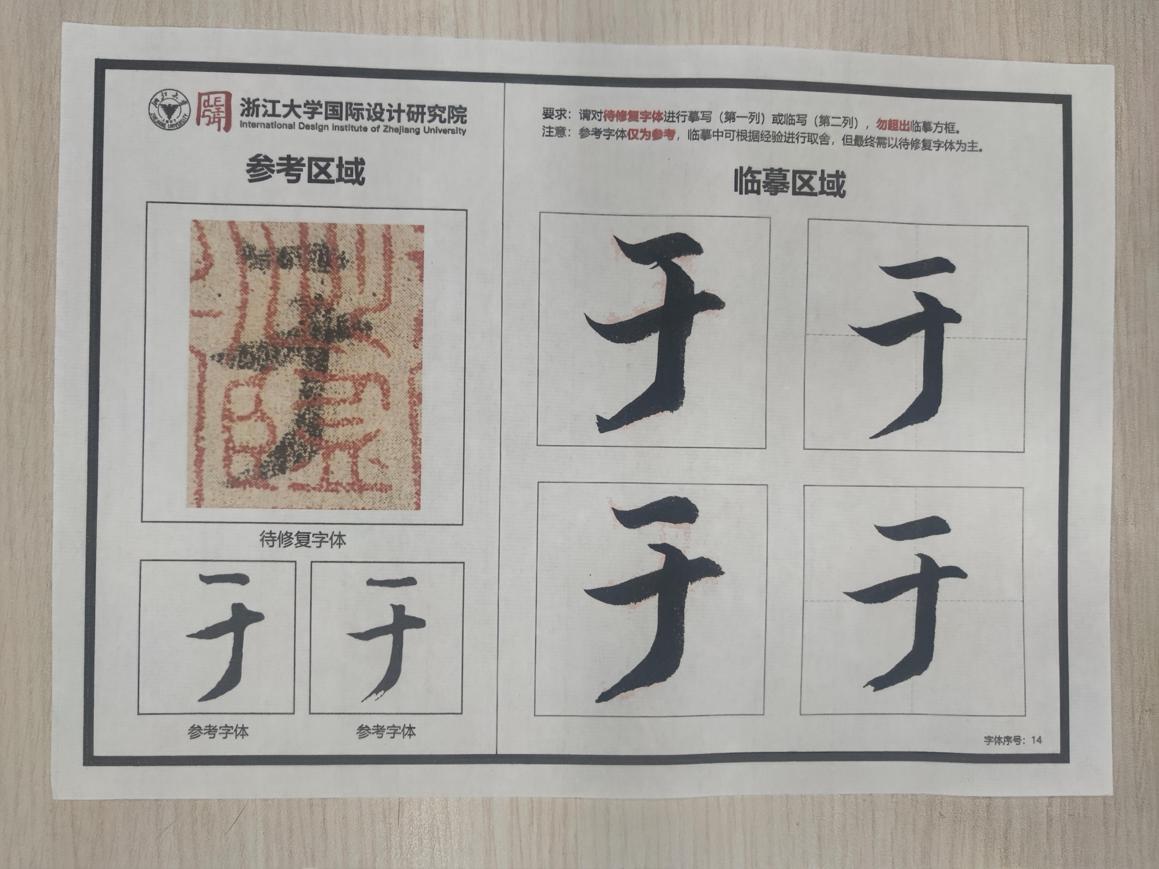 浙江大学国际设计研究院
International Design Institute of Zhejiang University
参考区域
待修复字体
于
于
参考字体
参考字体
要求：请对待修复字体进行摹写（第一列）或临写（第二列），勿超出临摹方框。
注意：参考字体仅为参考，临摹中可根据经验进行取舍，但最终需以待修复字体为主。
临摹区域
于
于
于
于
字体序号：14